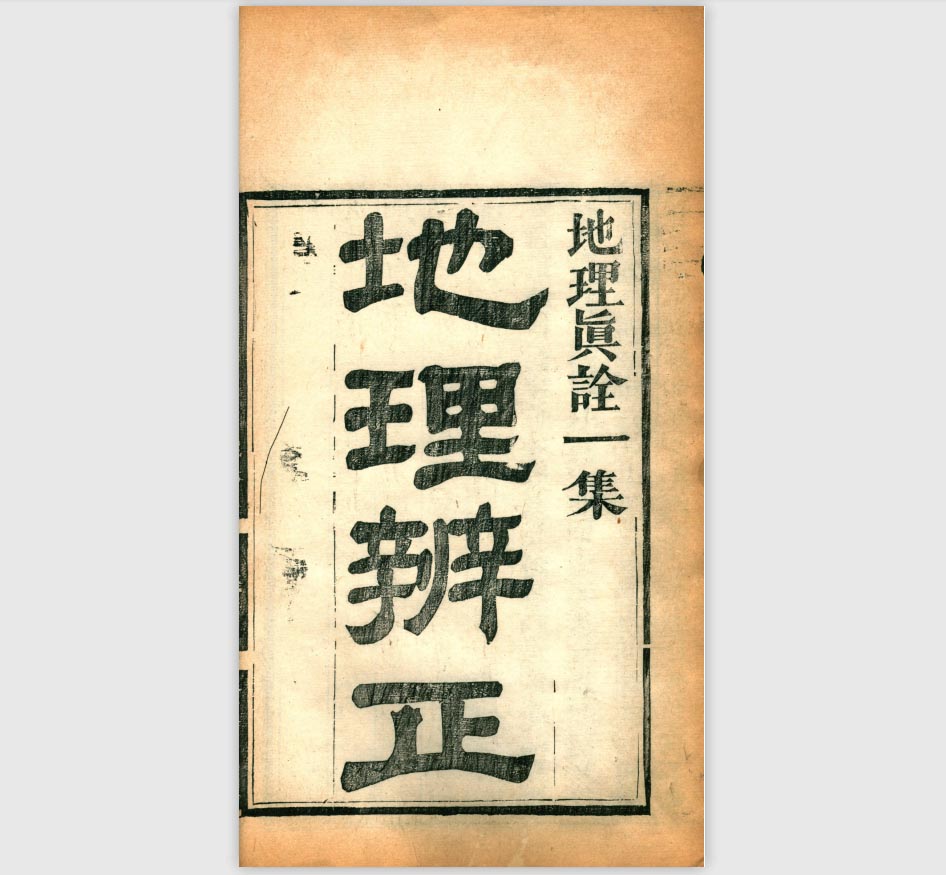 地理眞詮一集
地理辨正